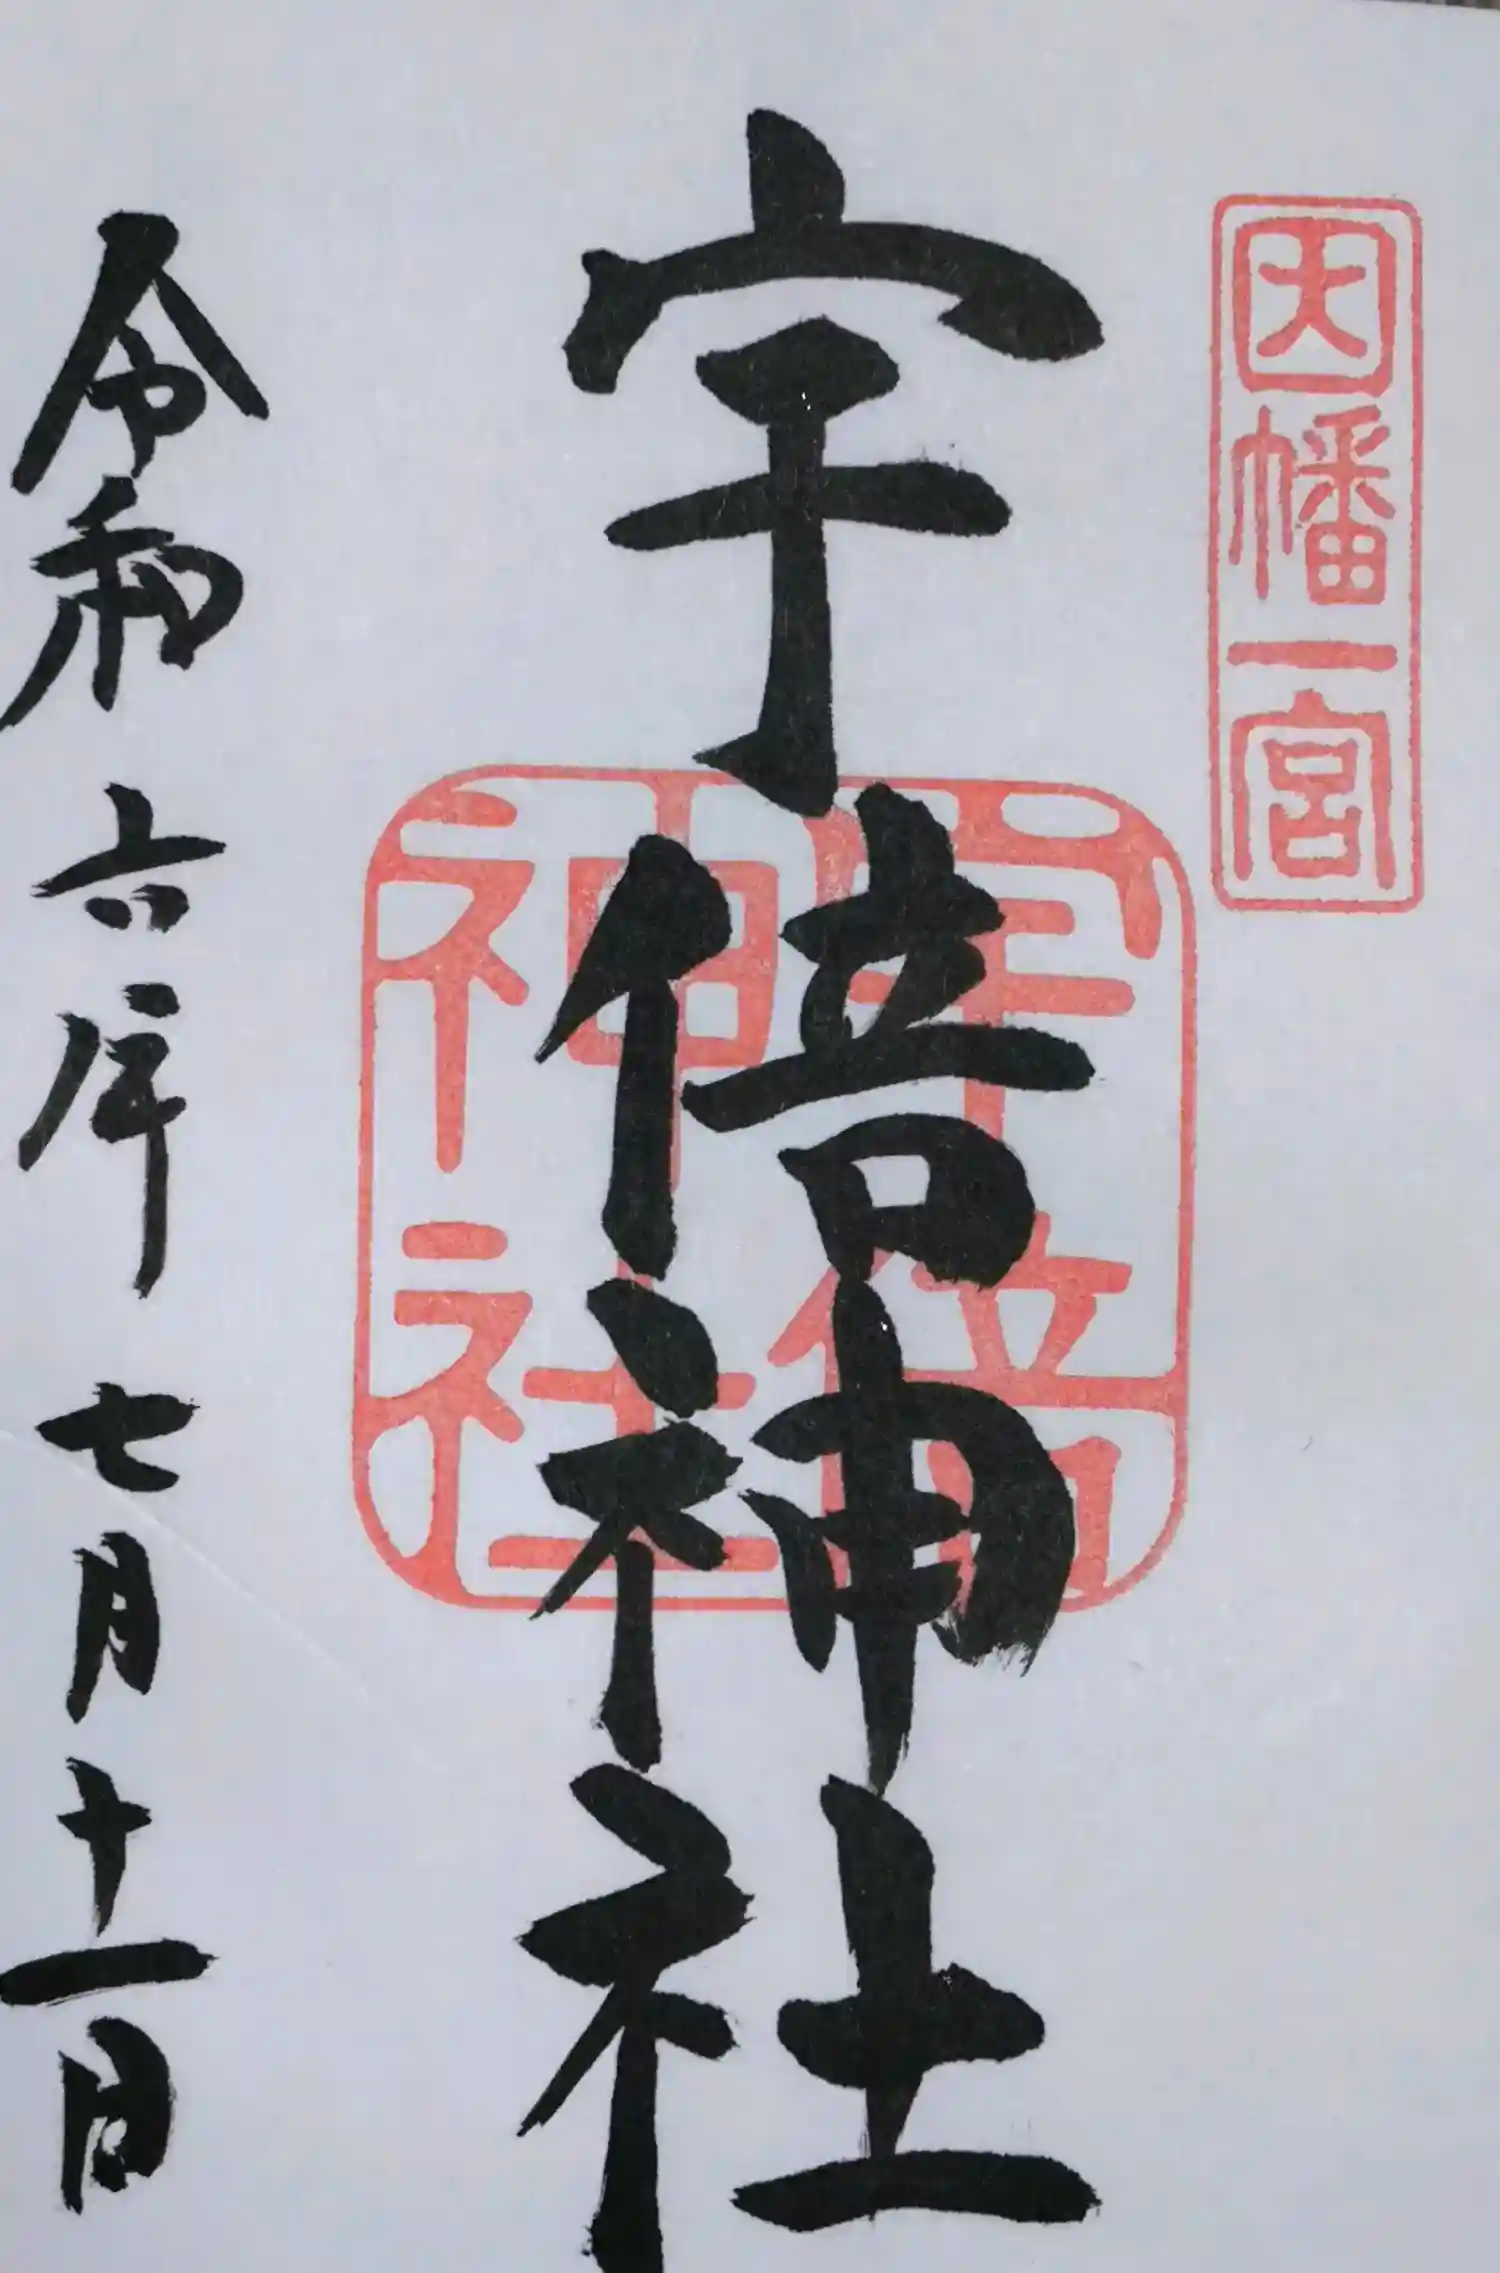 因幡一宮
宇倍神社
宇倍
神社
令和六年七月十一日